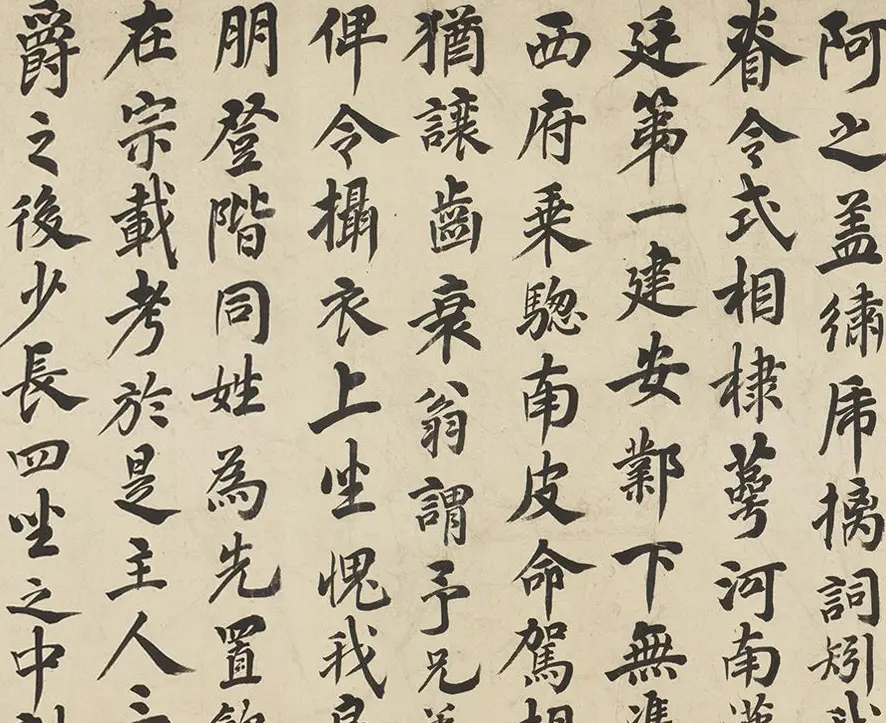 阿之盖繡虎摛詞矧
脊令式相棣萼河南
廷第一建安鄴下無
西府乘驄南皮命駕相
猶讓齒衰翁謂予兄
俾令攝衣上坐愧我
朋登階同姓為先置
在宗載考於是主人
爵之後少長四坐之中